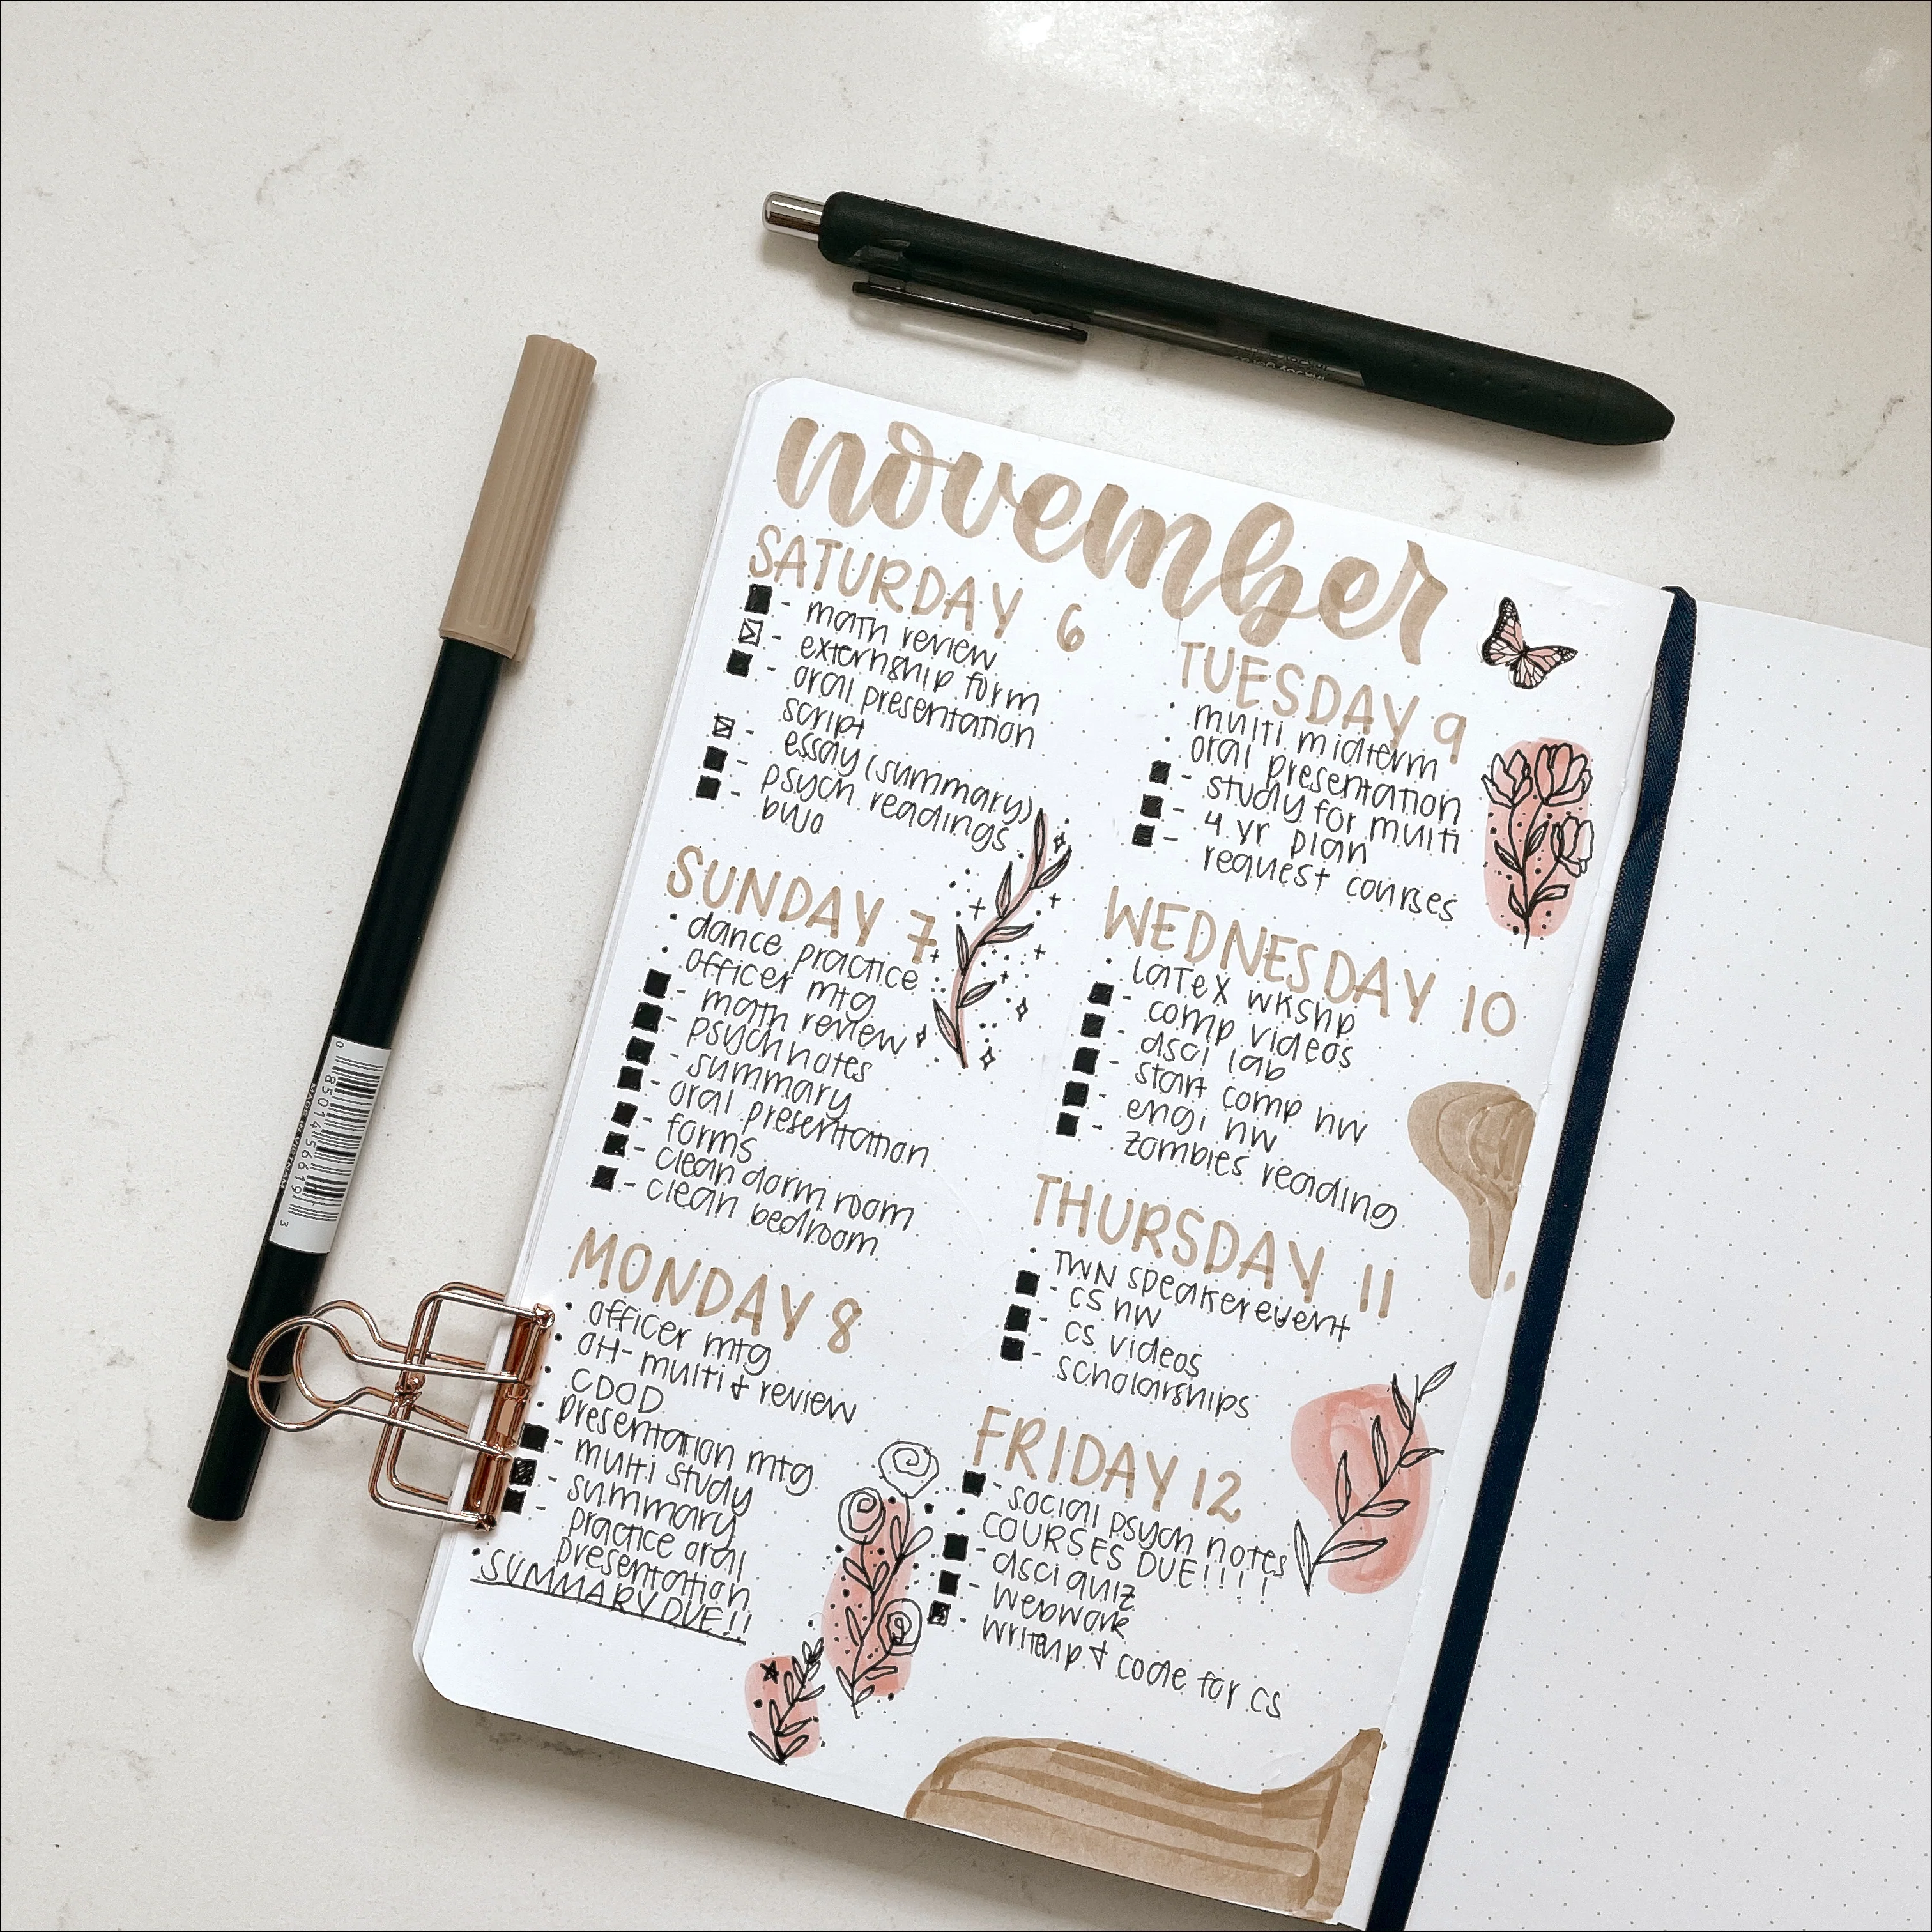 november
SATURDAY 6
- math review
- externship form
- oral presentation
script
- essay (summary)
- psych readings
- bujo
SUNDAY 7
• dance practice
• officer mtg
- math review
- psych notes
- summary
- oral presentation
- forms
- clean dorm room
- clean bedroom
MONDAY 8
• officer mtg
• OH- multi & review
• CDOD
• presentation mtg
- multi study
- summary
- practice oral
presentation
• SUMMARY DUE!!
TUESDAY 9
• multi midterm
• oral presentation
- study for multi
- 4 yr plan
- request courses
WEDNESDAY 10
• LaTeX wkshp
- comp videos
- dsci lab
- start comp hw
- engi hw
- zombies reading
THURSDAY 11
• TWN speaker event
- cs hw
- cs videos
- scholarships
FRIDAY 12
- social psych notes
• COURSES DUE!!!!
- dsci quiz
- webwork
- writeup & code for cs
MADE IN VIETNAM
0 85014 56619 3